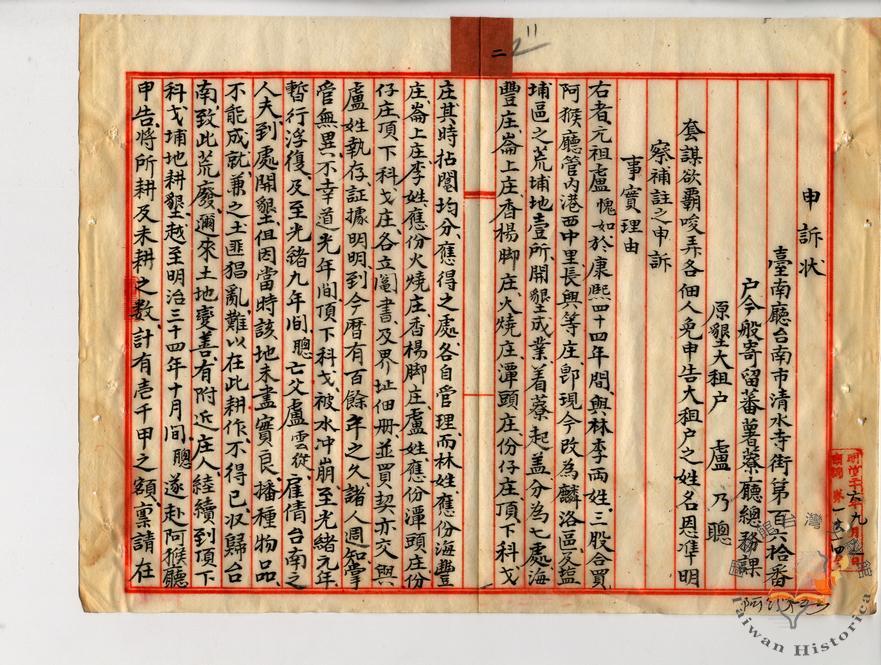 二
11
申訴狀
臺南廳台南市清水寺街第百六拾番
户今般寄留蕃薯藔廳總務課
原墾大租户 盧乃聰
套謀欲霸唆弄各佃人免申告大租户之姓名恩准明
察補註之申訴
事實理由
右者元祖盧愧如於康熙四十四年間與林李両姓三股合買
阿猴廳管内港西中里長興等庄即現今改為麟洛區及塩
埔區之荒埔地壹所開墾成業着藔起蓋分為七處海
豐庄崙上庄香楊脚庄火燒庄潭頭庄份仔庄頂下科戈
庄其時拈鬮均分應得之處各自管理而林姓應份海豐
庄崙上庄李姓應份火燒庄香楊脚庄盧姓應份潭頭庄份
仔庄頂下科戈庄各立鬮書及界址佃册並買契亦交與
盧姓執存証據明明到今曆有百餘年之久諸人週知掌
管無異不幸道光年間頂下科戈被水冲崩至光緒元年
暫行浮復及至光緒九年間聰亡父盧雲從雇倩台南之
人夫到處開墾但因當時該地未盡實良播種物品
不能成就兼之土匪猖亂難以在此耕作不得已収歸台
南致此荒廢邇來土地變善有附近庄人続續到頂下
科戈埔地耕墾越至明治三十四年十月間聰遂赴阿猴廳
申告將所耕及未耕之数計有壱千甲之額禀請在
Taiwan Historica